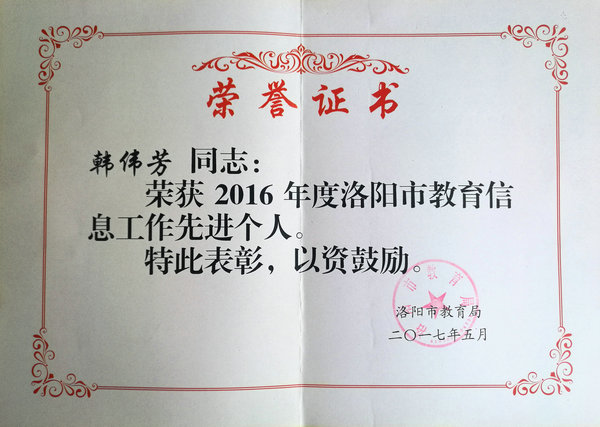 荣誉证书
韩伟芳 同志：
荣获 2016 年度洛阳市教育信
息工作先进个人。
特此表彰，以资鼓励。
洛阳市教育局
二〇一七年五月